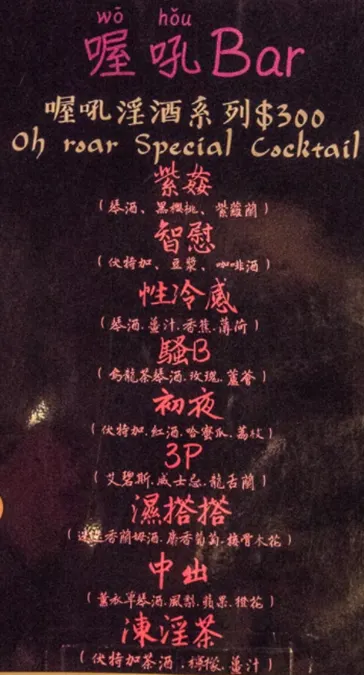 wǒ hǒu
喔吼Bar
喔吼淫酒系列$300
Oh roar Special Cocktail
紫姦
(琴酒、黑櫻桃、紫蘿蘭)
智慰
(伏特加、豆漿、咖啡酒)
性冷感
(琴酒.薑汁.香蕉.薄荷)
騷B
(烏龍茶琴酒.玫瑰.蘆薈)
初夜
(伏特加.紅酒.哈蜜瓜.荔枝)
3P
(艾碧斯.威士忌.龍舌蘭)
濕搭搭
香蘭姆酒.麝香葡萄.接骨木花)
中出
(薰衣草琴酒.鳳梨.蘋果.橙花)
凍淫茶
(伏特加茶酒.檸檬.薑汁)